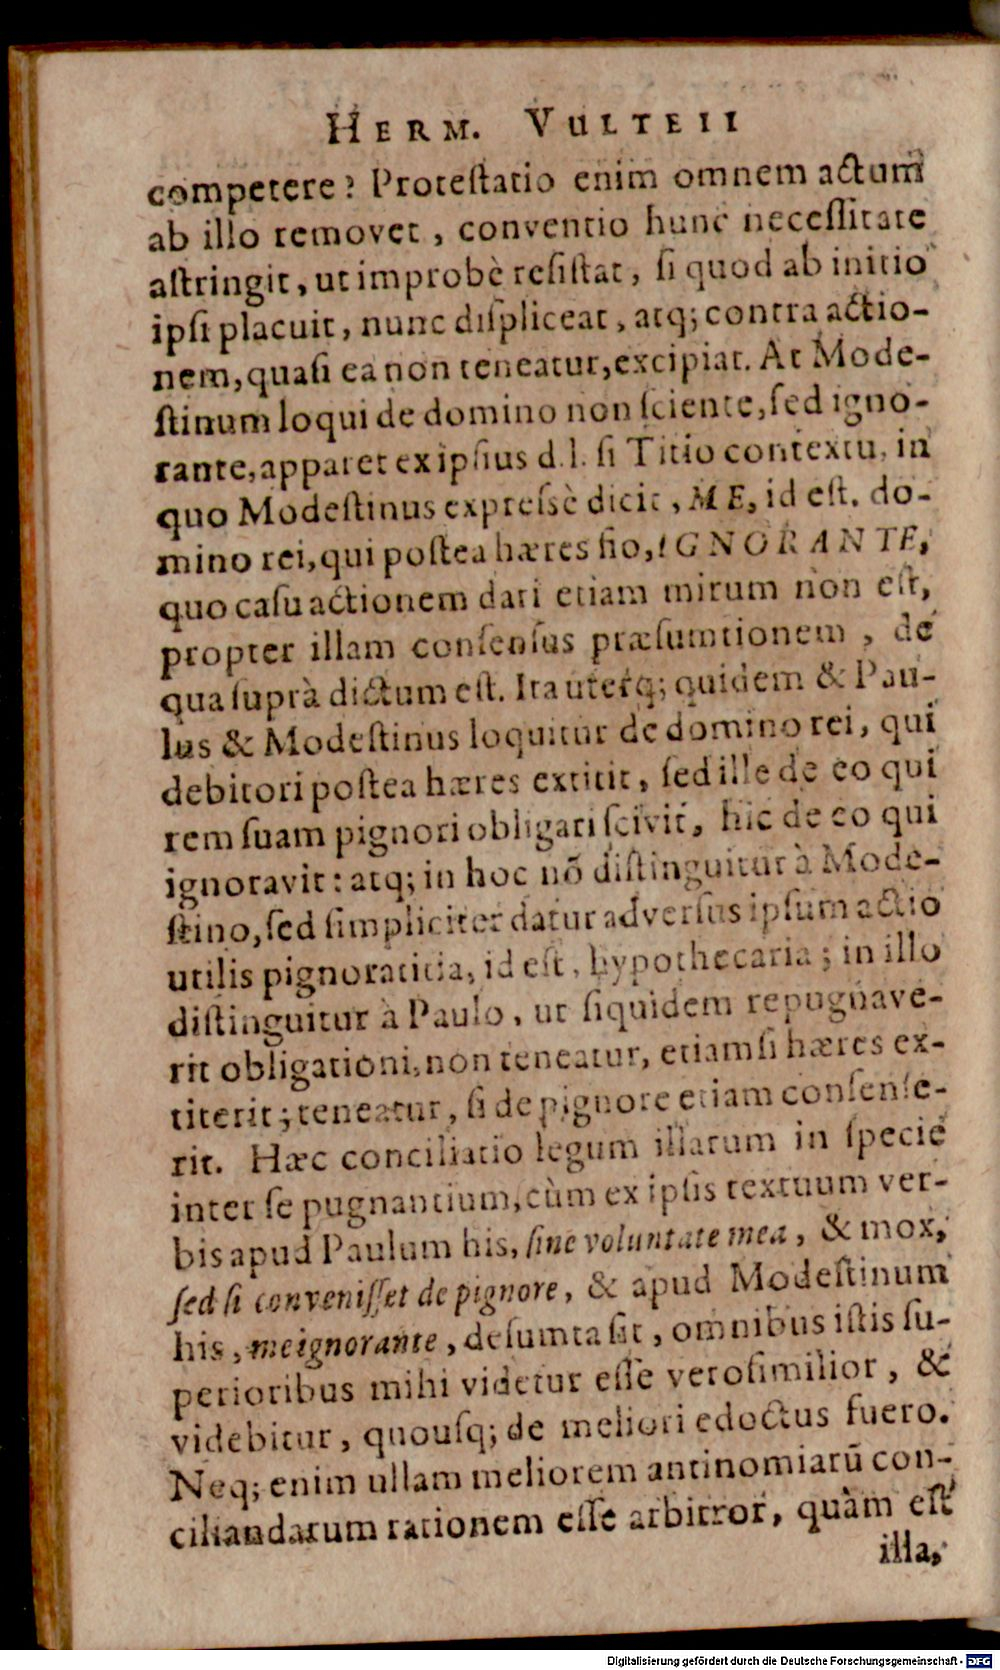 HERM. VULTEII
competere? Proteſtatio enim omnem actum
ab illo removet, conventio hunc neceſſitate
aſtringit, ut improbè reſiſtat, ſi quod ab initio
ipſi placuit, nunc diſpliceat, atq; contra actio-
nem, quaſi ea non teneatur, excipiat. At Mode-
ſtinum loqui de domino non ſciente, ſed igno-
rante, apparet ex ipſius d. l. ſi Titio contextu, in
quo Modeſtinus expreſsè dicit, ME, id eſt. do-
mino rei, qui poſtea hæres fio, IGNORANTE,
quo caſu actionem dari etiam mirum non eſt,
propter illam conſenſus præſumtionem, de
qua ſuprà dictum eſt. Ita uterq; quidem & Pau-
lus & Modeſtinus loquitur de domino rei, qui
debitori poſtea hæres extitit, ſed ille de eo qui
rem ſuam pignori obligari ſcivit, hic de eo qui
ignoravit: atq; in hoc nõ diſtinguitur à Mode-
ſtino, ſed ſimpliciter datur adverſus ipſum actio
utilis pignoratitia, id eſt, hypothecaria; in illo
diſtinguitur à Paulo, ut ſiquidem repugnave-
rit obligationi, non teneatur, etiamſi hæres ex-
titerit; teneatur, ſi de pignore etiam conſenſe-
rit. Hæc conciliatio legum illarum in ſpecie
inter ſe pugnantium, cùm ex ipſis textuum ver-
bis apud Paulum his, ſine voluntate mea, & mox,
ſed ſi conveniſſet de pignore, & apud Modeſtinum
his, me ignorante, deſumta ſit, omnibus iſtis ſu-
perioribus mihi videtur eſſe veroſimilior, &
videbitur, quouſq; de meliori edoctus fuero.
Neq; enim ullam meliorem antinomiarũ con-
ciliandarum rationem eſſe arbitror, quàm eſt
illa,
Digitalisierung gefördert durch die Deutsche Forschungsgemeinschaft - DFG